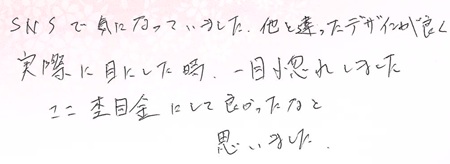 SNSで気になっていました。他と違ったデザインが良く
実際に目にした時、一目惚れしました
ここ杢目金にして良かったなと
思いました。